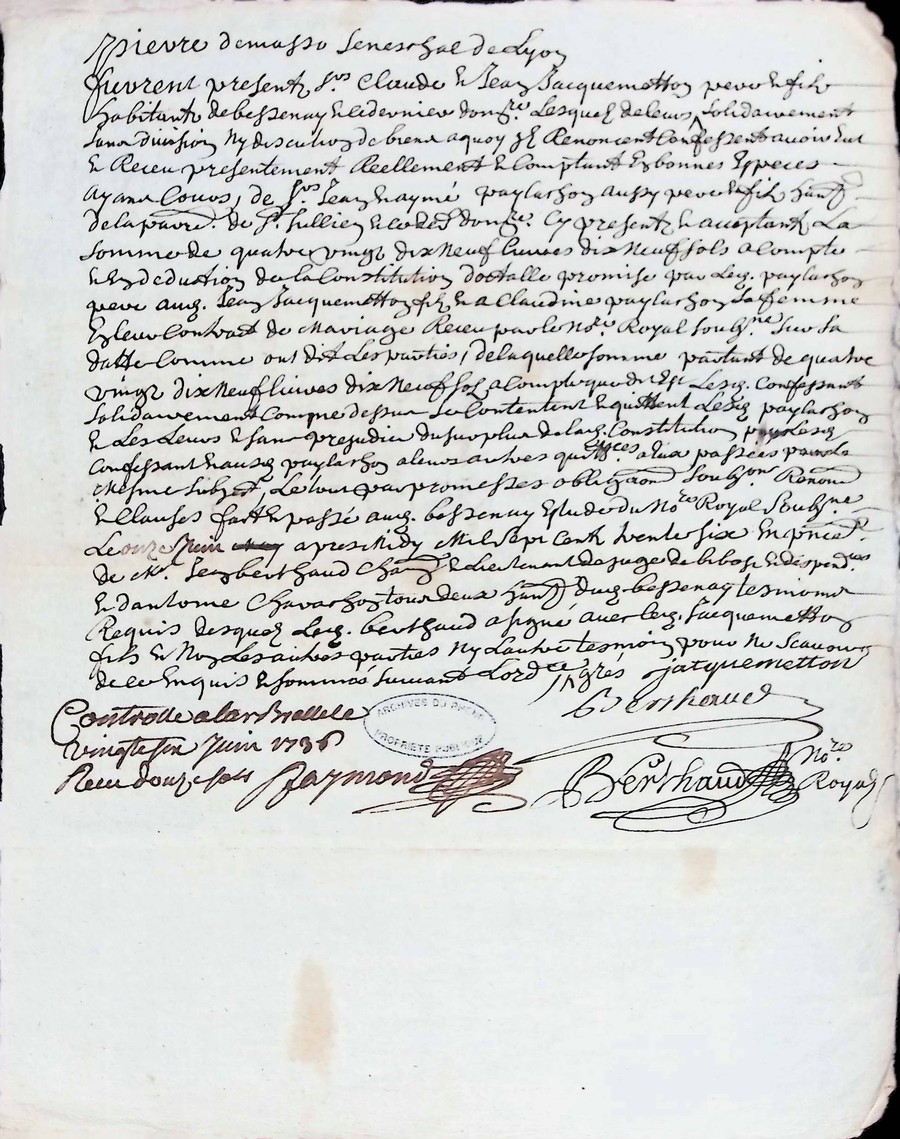 pierre demasso Seneschal de Lyon
furrent present Srs. Claude & Jean Jacquemetton pere & fils
habitants de bessenay & le dernier don.re Lesquels de leurs Solidairement
sans division Ny discution de biens a quoy Ils Renoncent Confessent avoir Eut
& Receu presentement Reellement & Comptant En bonnes Especes
ayans Cours, de Srs. Jean & aymé paylachon aussy pere & fils hants.
de la parre. de St. Jullien & le dernier. Cy present & acceptants La
Somme de quatre vingt dix Neuf Livres dix Neuf Sols a Compte
& En deduction de la Constitution dottalle promise par Led. paylachon
pere aud. Jean Jacquemetton fils & a Claudine paylachon Sa femme
En leur Contrat de Mariage Receu par le No.re Royal Soub.ne Sur Sa
datte Comme ont dit Les parties, de laquelle somme partant de quatre
vingt dix Neuf Livres dix Neuf Sols a Compte que dit Est Lesd. Confessants
Solidairement Comme dessus Se Contentent & quittent Lesd. paylachon
& Les Leurs & sans prejudice du surplus de lad. Constitution Lesd.
Confessant & ausd. paylachon a leurs autres quittces a Eux passées pour Le
Mesme Subjet, Le tout par promesses obligaons Soubmons Renonc
& Clauses fait & passé aud. bessenay Estude du No.re Royal Soub.ne
Le onze Juin apres Midy Mil Sept Cent trente Six En pnce.
de Mr. Jean berthaud Lieutenant de juge de bibost & despend.ces
& dantoine Chavachon tous deux hants dud. bessenay tesmoins
Requis desquels Led. berthaud a signé avec Led. Jacquemetton
fils & Non Les autres parties Ny Lautre tesmoin pour Ne Scavoir
de ce Enquis & Sommés Suivant Lord.ce Jacquemetton
Berthaud
Controlle a larbrelle le
vingt Juin 1736
Receu douze sols Raymond
ARCHIVES DU RHÔNE
PROPRIÉTÉ PUBLIQUE
Berthaud No.re
Royal